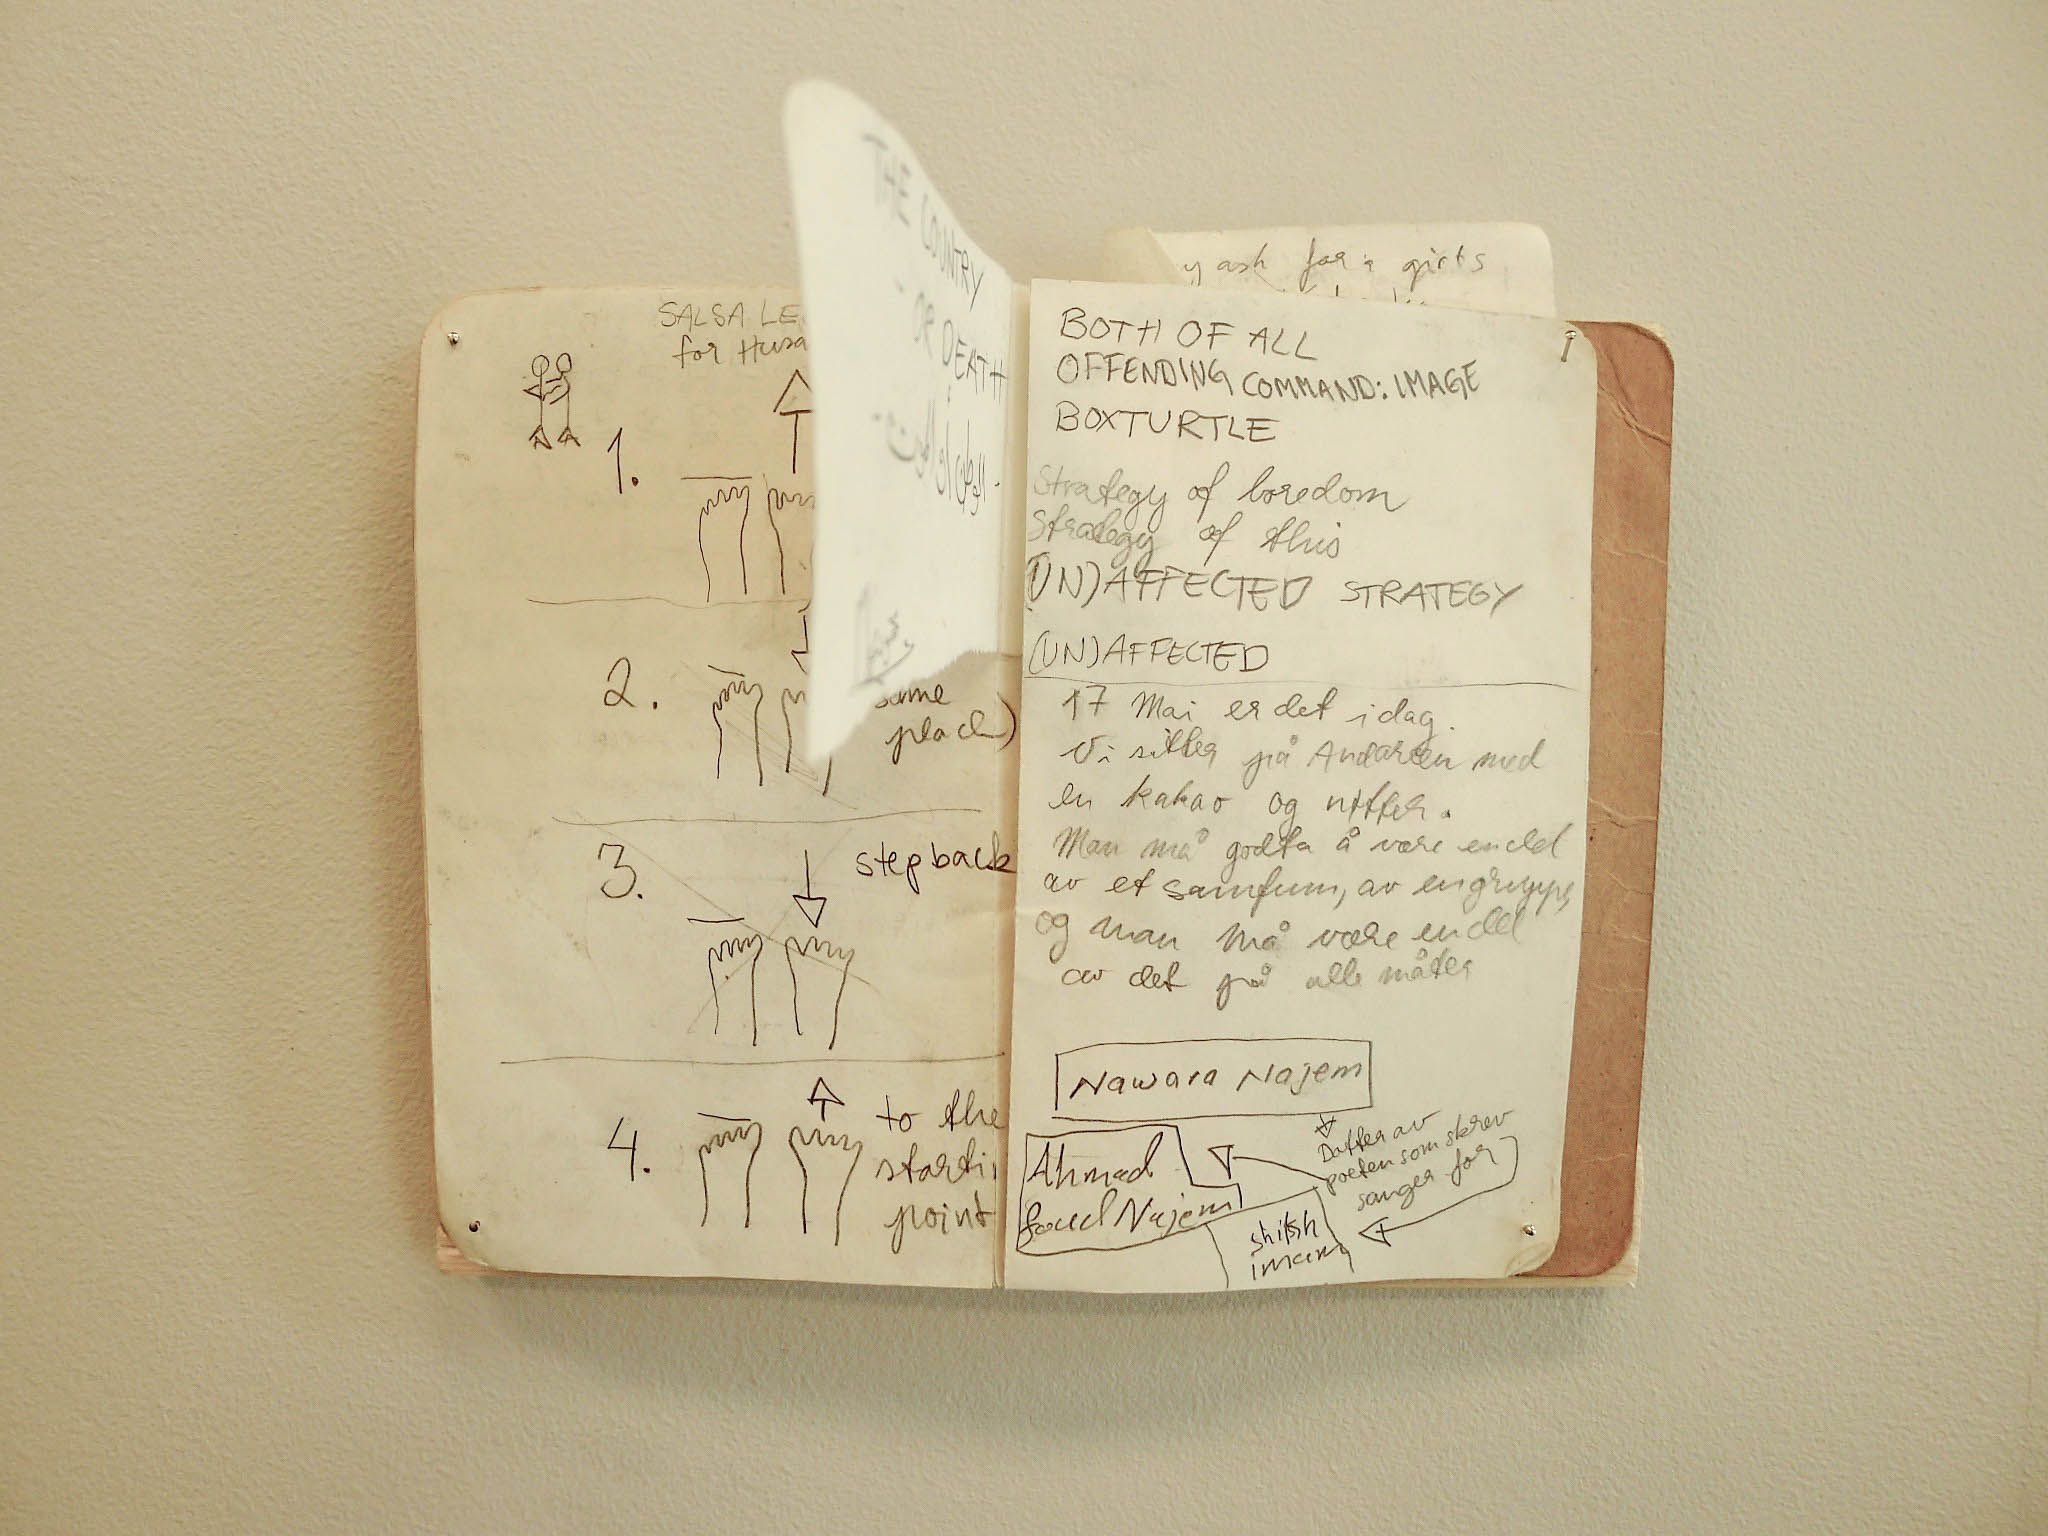 SALSA LE
for Husa
1.
2.
same
place)
3.
step back
4.
to the
starti
point
THE
COUNTRY
DEATH
y ask for a girls
BOTH OF ALL
OFFENDING COMMAND: IMAGE
BOXTURTLE
Strategy of boredom
Strategy of this
(UN)AFFECTED STRATEGY
(UN)AFFECTED
17 Mai er det idag.
Vi sitter på med
en kakao og nøtter.
Man må godta å være endel
av et samfunn, av en gruppe,
og man må være endel
av det på alle måter
Nawara Najem
Datter av
poeten som skrev
sanger for
Ahmad
Foud Najem
imam